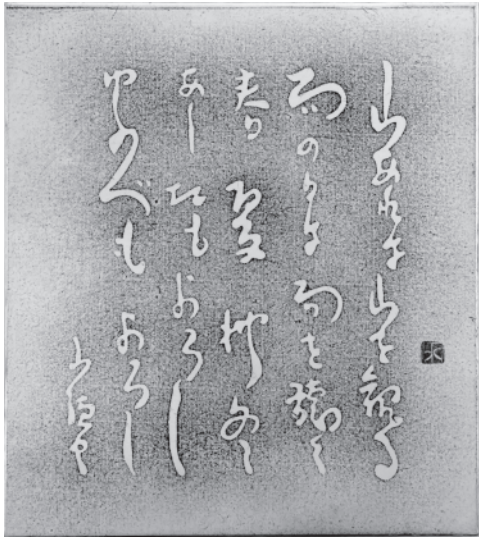 山あれば山を観る
雨の日は雨を聴く
春夏秋冬
あしたもよろし
ゆふべもよろし